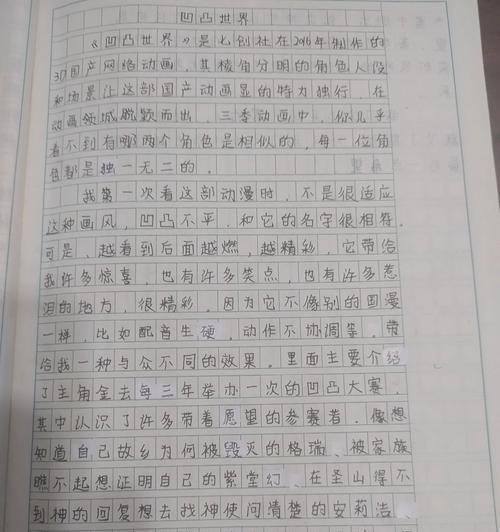 凹凸世界
《凹凸世界》是七创社在2016年制作的
3D国产网络动画，其棱角分明的角色人设
和场景让这部国产动画显的特为独行，在
动画领域脱颖而出，三季动画中，你几乎
看不到有哪两个角色是相似的，每一位角
色都是独一无二的。
我第一次看这部动漫时，不是很适应
这种画风，凹凸不平，和它的名字很相符，
可是、越看到后面越燃，越精彩，它带给
我许多惊喜，也有许多笑点，也有许多惹
泪的地方，很精彩，因为它不像别的国漫
一样，比如配音生硬，动作不协调等，带
给我一种与众不同的效果。里面主要介绍
了主角金去每三年举办一次的凹凸大赛，
其中认识了许多带着愿望的参赛者，像想
知道自己故乡为何被毁灭的格瑞、被家族
瞧不起想证明自己的紫堂幻、在圣山得不
到神的回复想去找神使问清楚的安莉洁、